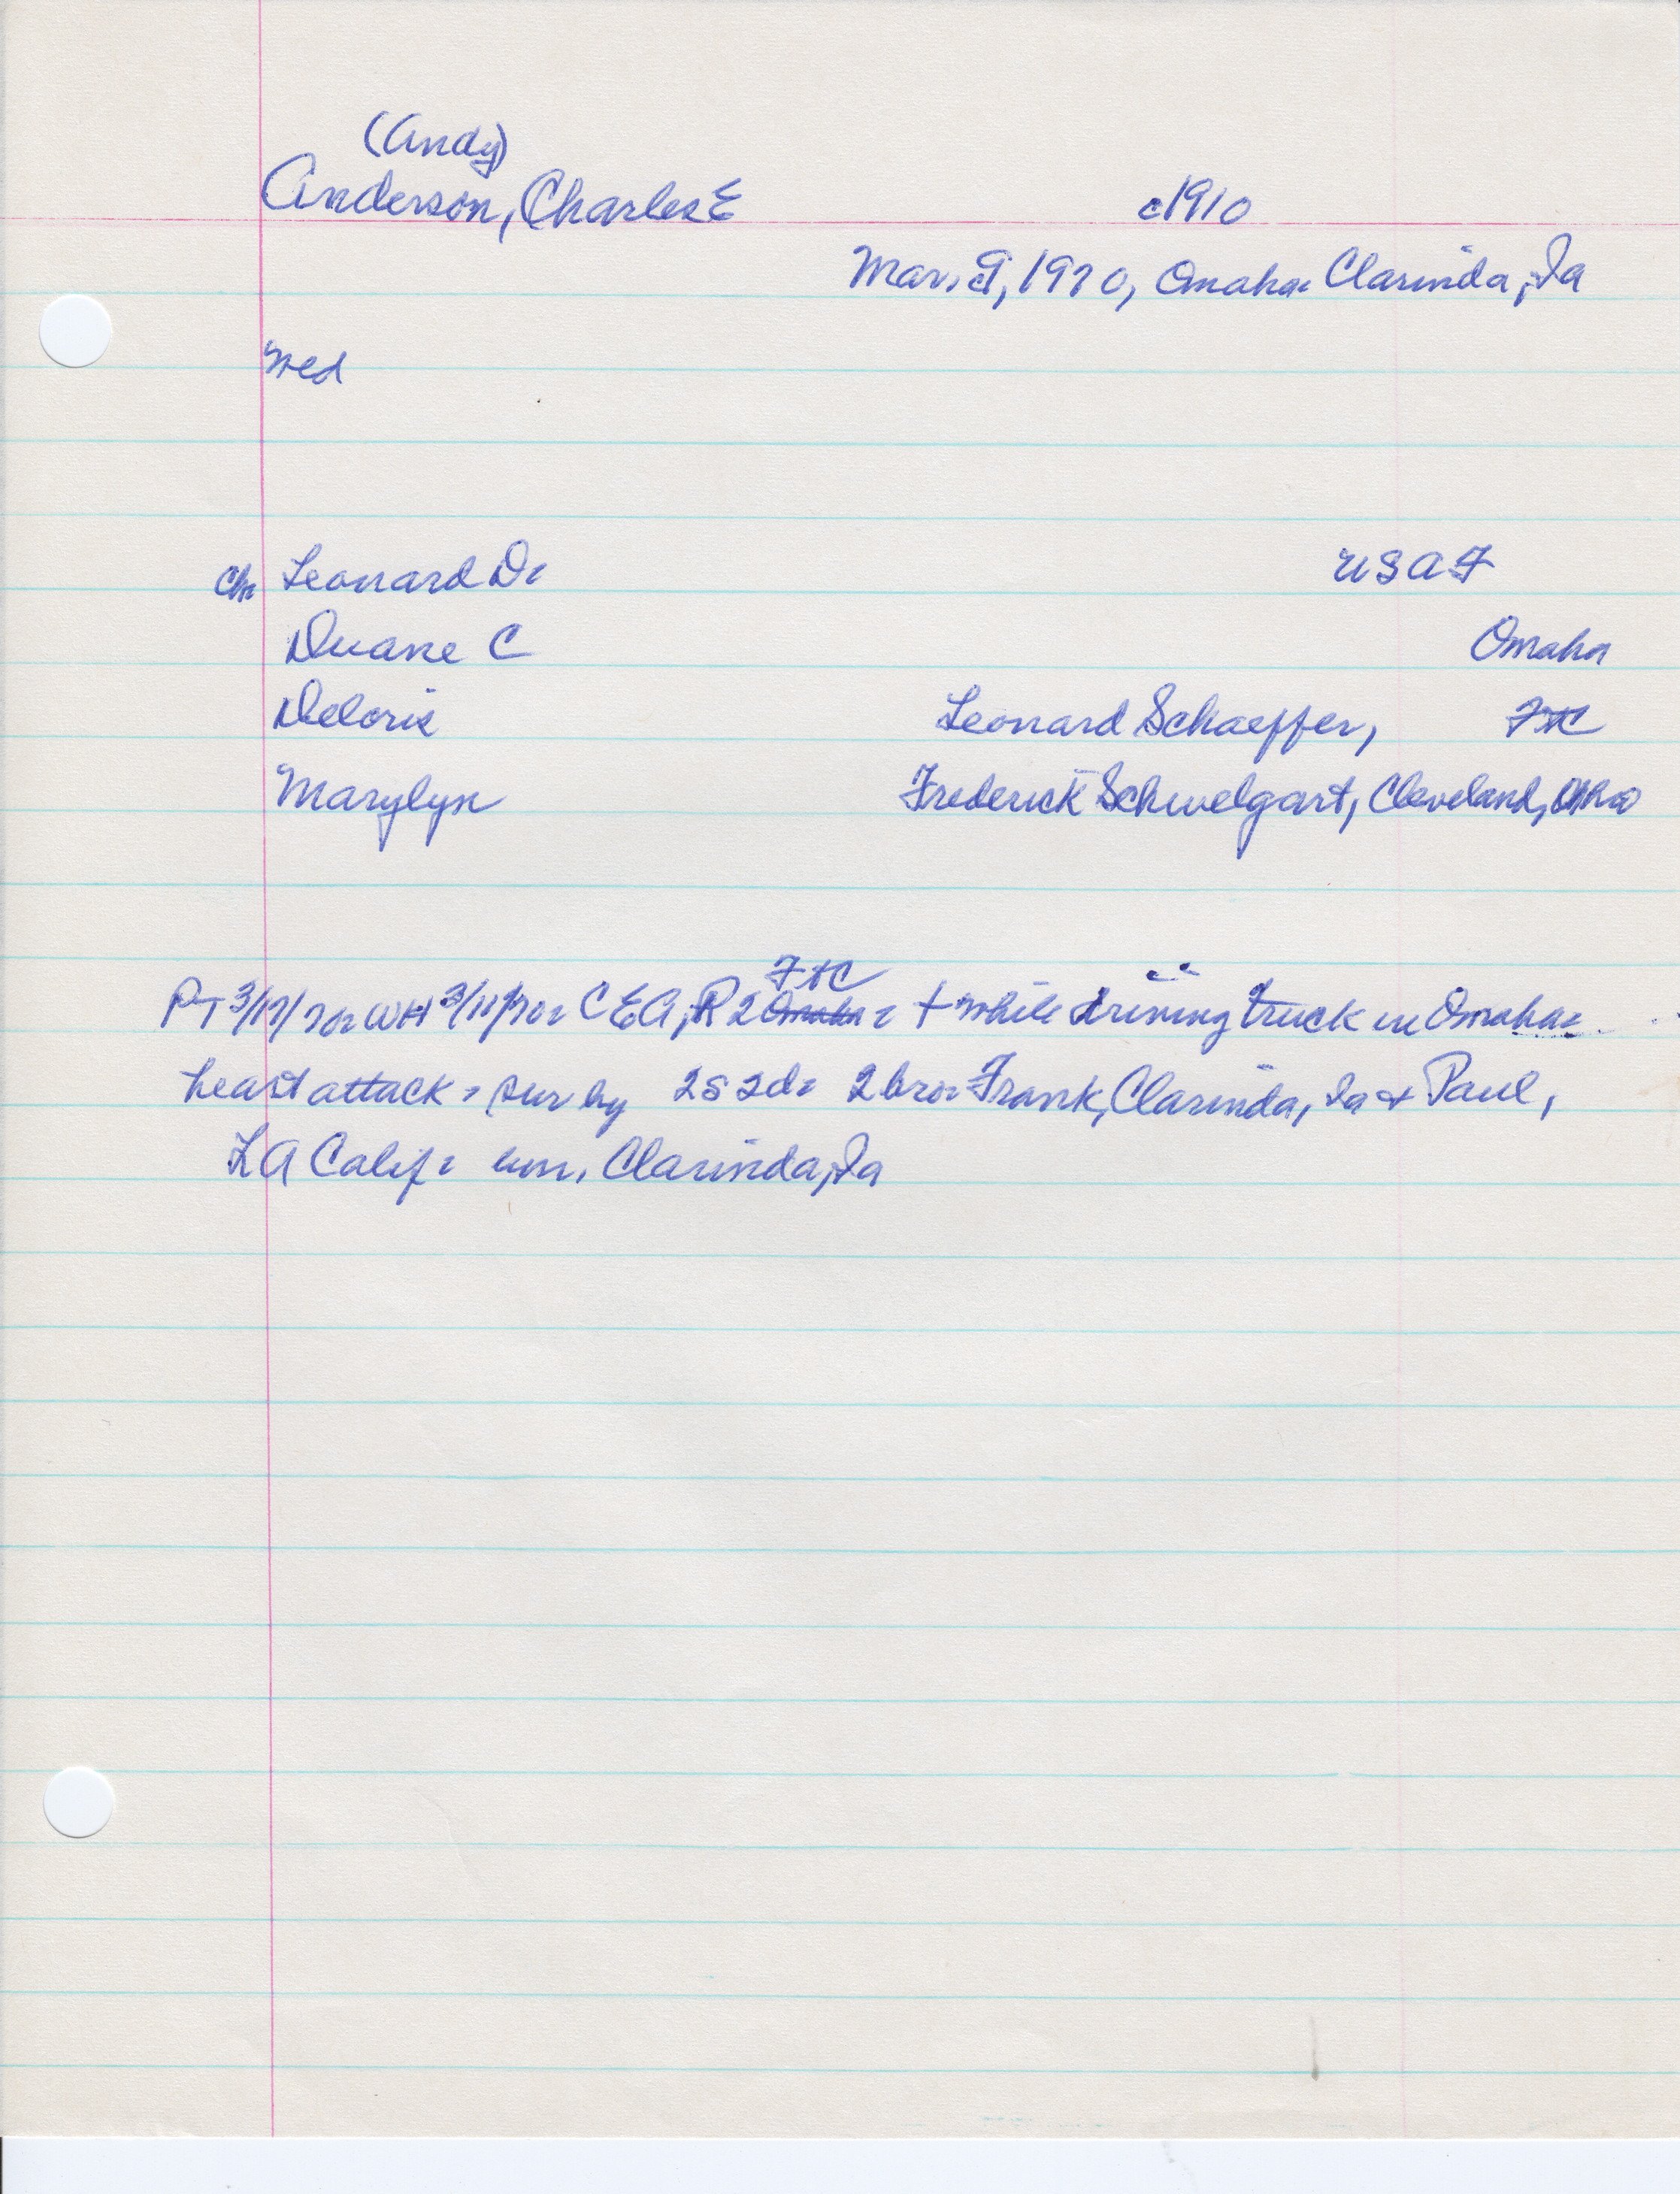 (Andy)
Anderson, Charles E c1910
Mar. 9, 1970, Omaha Clarinda, Ia
med
Ch Leonard D. USAF
Duane C Omaha
Deloris Leonard Schaeffer, FtC
Marylyn Frederick Schwelgart, Cleveland, Ohio
FtC
PT 3/17/70 = WH 3/11/70 = C E A, R 2 Omaha = + while driving truck in Omaha =
heart attack = sur by 2s 2d = 2 bro = Frank, Clarinda, Ia + Paul,
LA Calif =, Clarinda, Ia